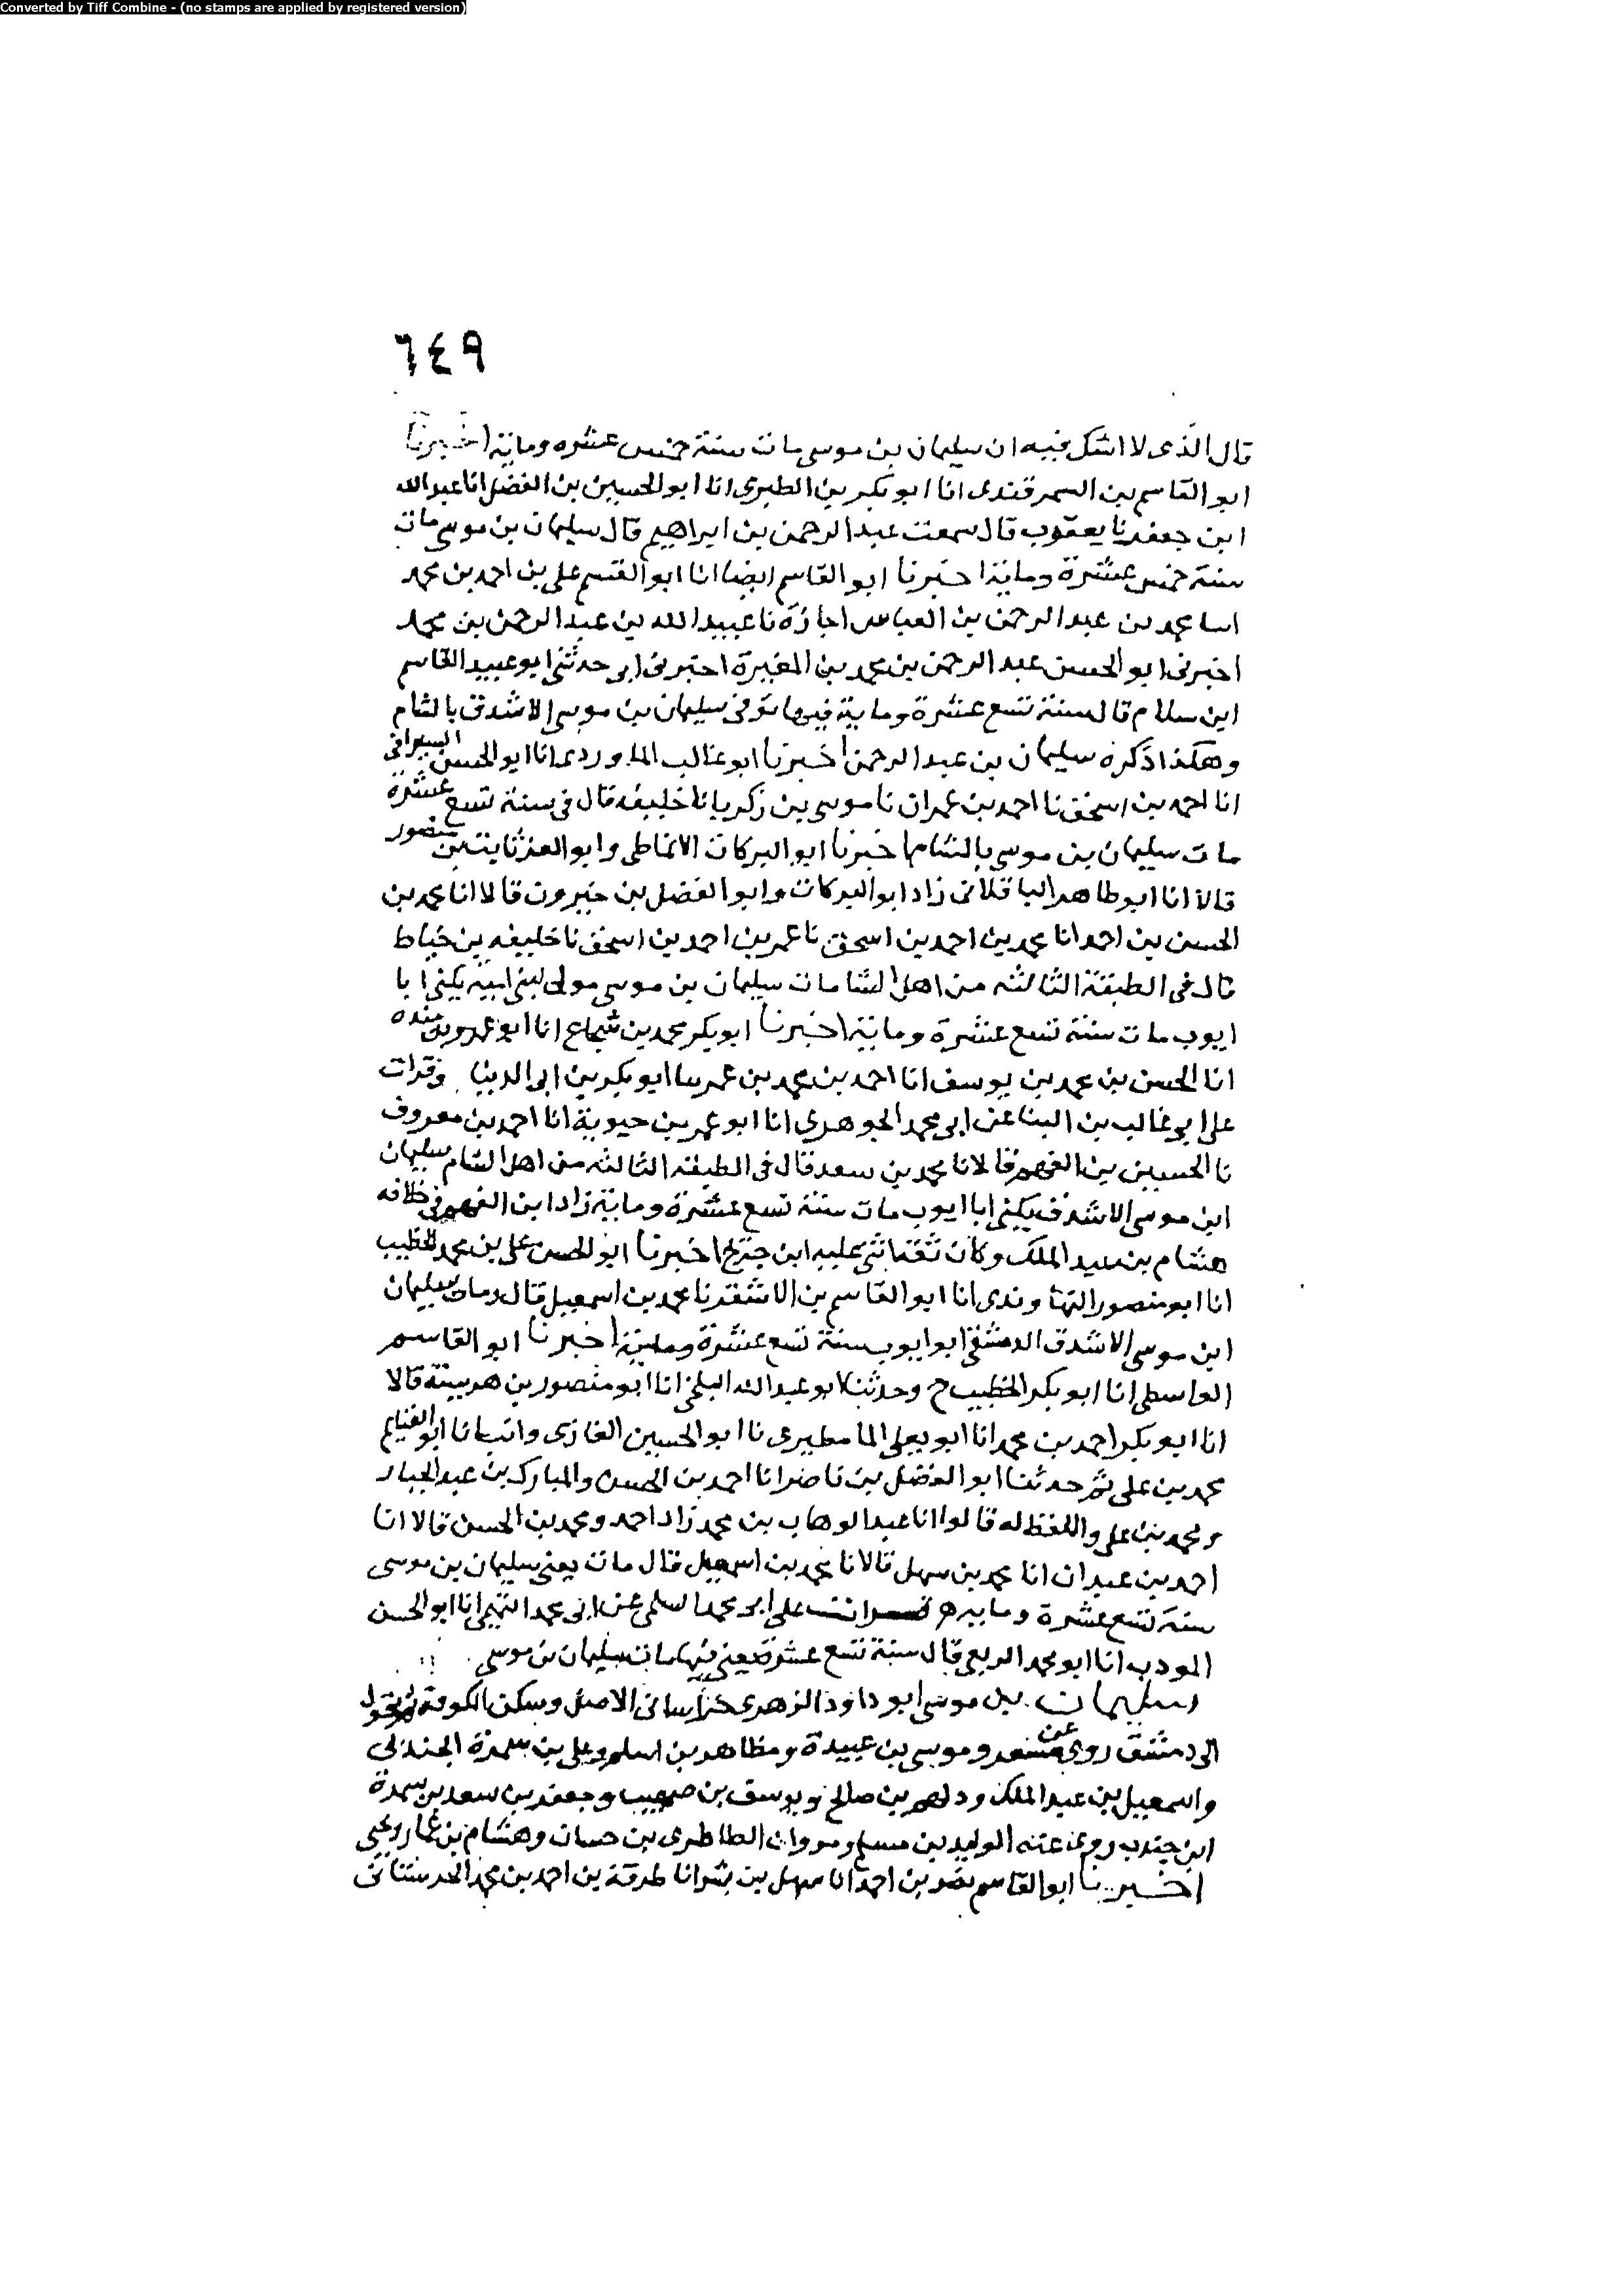 Converted by Tiff Combine - (no stamps are applied by registered version)
٦٤٩
قال الذى لا اشك فيه ان سليمان بن موسى مات سنة خمس عشره ومائة اخبرنا
ابو القاسم بن السمرقندى انا ابو بكر بن الطبرى انا ابو الحسين بن الفضل انا عبد الله
ابن جعفر نا يعقوب قال سمعت عبد الرحمن بن ابراهيم قال سليمان بن موسى مات
سنة خمس عشرة ومائة اخبرنا ابو القاسم ايضا انا ابو القسم على بن احمد بن محمد
انا محمد بن عبد الرحمن بن العباس اجازة نا عبيد الله بن عبد الرحمن بن محمد
اخبرنى ابو الحسن عبد الرحمن بن محمد بن المغيرة اخبرنى ابى حدثنى ابو عبيد القاسم
ابن سلام قال سنة تسع عشرة ومايئة فيها توفى سليمان بن موسى الاشدق بالشام
وهكذا ذكره سليمان بن عبد الرحمن اخبرنا ابو غالب الماوردى انا ابو الحسن السيرافى
انا احمد بن اسحق نا احمد بن عمران نا موسى بن زكريا نا خليفه قال فى سنة تسع عشرة
مات سليمان بن موسى بالشام اخبرنا ابو البركات الانماطى وابو العز ثابت بن منصور
قالا انا ابو طاهر الباقلانى زاد ابو البركات وابو الفضل بن خيرون قالا انا محمد بن
الحسن بن احمد انا محمد بن احمد بن اسحق نا عمر بن احمد بن اسحق نا خليفه بن خياط
قال فى الطبقة الثالثه من اهل الشامات سليمان بن موسى مولى لبنى اميه يكنى ابا
ايوب مات سنة تسع عشرة ومائية اخبرنا ابو بكر محمد بن شجاع انا ابو عمرو بن منده
انا الحسن بن محمد بن يوسف انا احمد بن محمد بن عمر نا ابو بكر بن ابى الدنيا وقرات
على ابى غالب بن البنا عن ابى محمد الجوهرى انا ابو عمر بن حيوية انا احمد بن معروف
نا الحسين بن الفهم قالا نا محمد بن سعد قال فى الطبقه الثالثه من اهل الشام سليمان
ابن موسى الاشدق يكنى ابا ايوب مات سنة تسع عشرة ومائية زاد ابن الفهم فى خلافه
هشام بن عبد الملك وكان ثقة اثنى عليه ابن جريج اخبرنا ابو الحسن على بن محمد الخطيب
انا ابو منصور النهاوندى انا ابو القاسم بن الاشقر نا محمد بن اسمعيل قال ومات سليمان
ابن موسى الاشدق الدمشقى ابو ايوب سنة تسع عشرة ومائة اخبرنا ابو القاسم
الواسطى انا ابو بكر الخطيب ح وحدثنا ابو عبد الله البلخى انا ابو منصور بن هريسة قالا
انا ابو بكر احمد بن محمد انا ابو يعلى المامطيرى نا ابو الحسين الغازى وانبانا ابو الغنايم
محمد بن على ثم حدثنا ابو الفضل بن ناصر انا احمد بن الحسن والمبارك بن عبد الجبار
ومحمد بن على واللفظ له قالوا انا عبد الوهاب بن محمد زاد احمد ومحمد بن الحسن قالا انا
احمد بن عبدان انا محمد بن سهل قالا نا محمد بن اسمعيل قال مات يعنى سليمان بن موسى
سنة تسع عشرة ومايه قرات على ابى محمد السلمى عن ابى محمد التميمى انا ابو الحسن
المودب انا ابو محمد الربعى قال سنة تسع عشرة يعنى فيها مات سليمان بن موسى
سليمان بن موسى ابو داود الزهرى خراسانى الاصل وسكن الكوفة ثم تحول
الى دمشق روى عن مسعر وموسى بن عبيدة ومظاهر بن اسلم وعلى بن سمرة الجندلى
واسمعيل بن عبد الملك ودلهم بن صالح ويوسف بن صهيب وجعفر بن سعد بن سمرة
ابن جندب روى عنه الوليد بن مسلم ومروان الطاطرى بن حسان وهشام بن عمار ويحيى
اخبرنا ابو القاسم نصر بن احمد انا سهل بن بشر انا طرفة بن احمد بن محمد الحرستانى